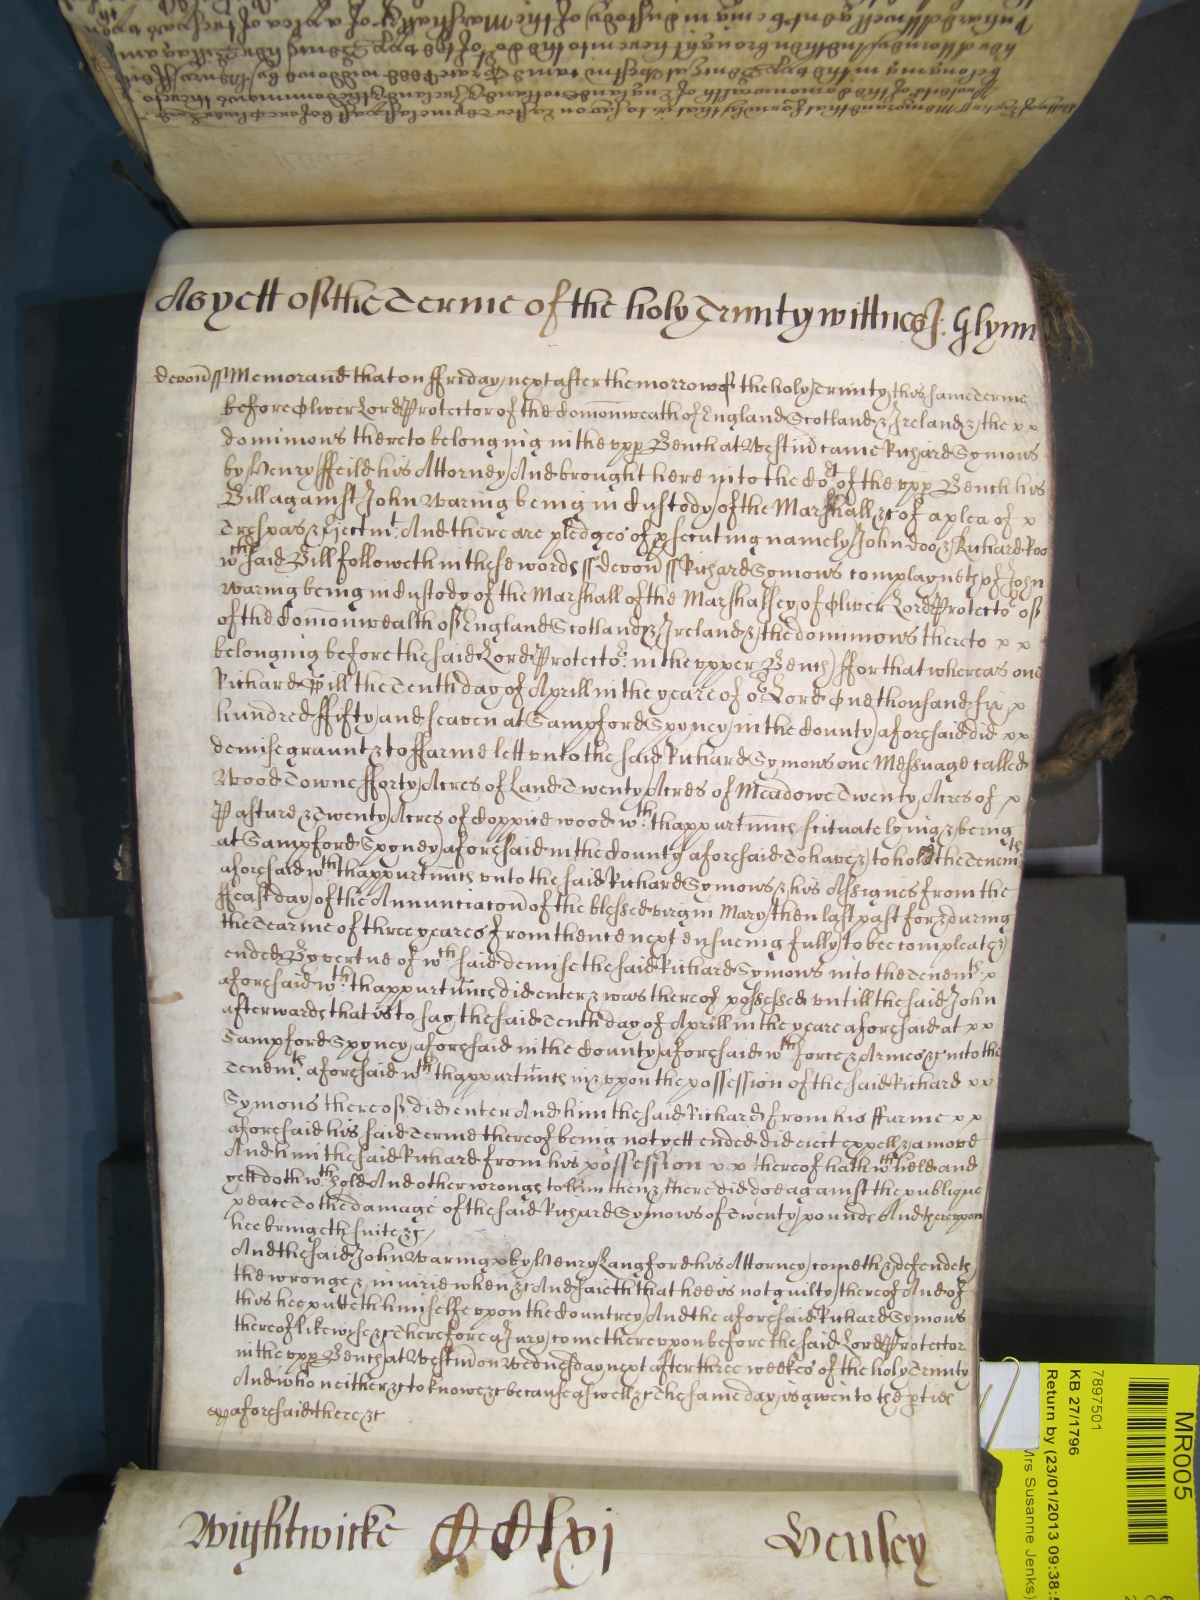 As yett of the Terme of the holy Trinity wittnes J. Glynn
Devon ss Memorand that on ffriday next after the morrow of the holy Trinity this same Terme
before Oliver Lord Protector of the Comonweath of England Scotland & Ireland & the x x
dominions thereto belonging in the vpp Bench at Westm came Richard Symons
by Henry ffeild his Attorney And brought here into the Cort of the vpp Bench his
Bill against John Waring being in Custody of the Marshall &c of a plea of x
Trespas & Ejectmt And there are pledges of psecuting namely John Doo & Richard Roo
wch said Bill followeth in these words ss Devon ss Richard Symons complayneth of John
Waring being in Custody of the Marshall of the Marshalsey of Oliver Lord Protector of
of the Comonwealth of England Scotland & Ireland & the dominions thereto x x
belonging before the said Lord Protector in the vpper Bench ffor that whereas one
Richard Pill the Tenth day of Aprill in the yeare of or Lord One thousand six x
hundred ffifty and seaven at Sampford Spyney in the County aforesaid did x x
demise graunt & to ffarme lett vnto the said Richard Symons one Messuage called
Wood Towne fforty Acres of Land Twenty Acres of Meadowe Twenty Acres of x
Pasture & Twenty Acres of Coppice wood wth thappurtnncs scituate lying & being
at Sampford Spyney aforesaid in the County aforesaid To have & to hold the Tenemts
aforesaid wth thappurtnncs vnto the said Richard Symons & his Assignes from the
ffeast day of the Annunciacon of the blessed virgin Mary then last past for & during
the Tearme of three yeares from thence next ensueing fully to bee compleate &
ended By vertue of wch said demise the said Richard Symons into the Tenemts x
aforesaid wth thappurtnncs did enter & was thereof possessed vntill the said John
afterwards that is to say the said Tenth day of Aprill in the yeare aforesaid at x x
Sampford Spyney aforesaid in the County aforesaid wth force & Armes &c into the
Tenemts aforesaid wth thappurtnncs in & vpon the possession of the said Richard x x
Symons thereof did enter And him the said Richard from his ffarme x x
aforesaid his said Terme thereof being not yett ended did eiect expell & amove
And him the said Richard from his possession x x thereof hath wthheld and
yett doth wthhold And other wrongs to him then & there did doe against the publique
peace To the damage of the said Richard Symons of Twenty pounds And therevpon
hee bringeth suite &c
And the said John Waring x by Henry Langford his Attorney cometh & defendeth
the wronge & iniurie when &c And saieth that hee is not guilty thereof And of
this hee putteth himselfe vpon the Countrey And the aforesaid Richard Symons
thereof likewise &c Therefore a Jury come therevpon before the said Lord Protector
in the vpp Bench at Westm on Wednesday next after three weekes of the holy Trinity
And who neither &c to knowe &c because aswell &c The same day is given to the pties
aforesaid there &c
Wightwicke CClxvj Henley
MR005
7897501
KB 27/1796
Return by (23/01/2013 09:38:5
Mrs Susanne Jenks)